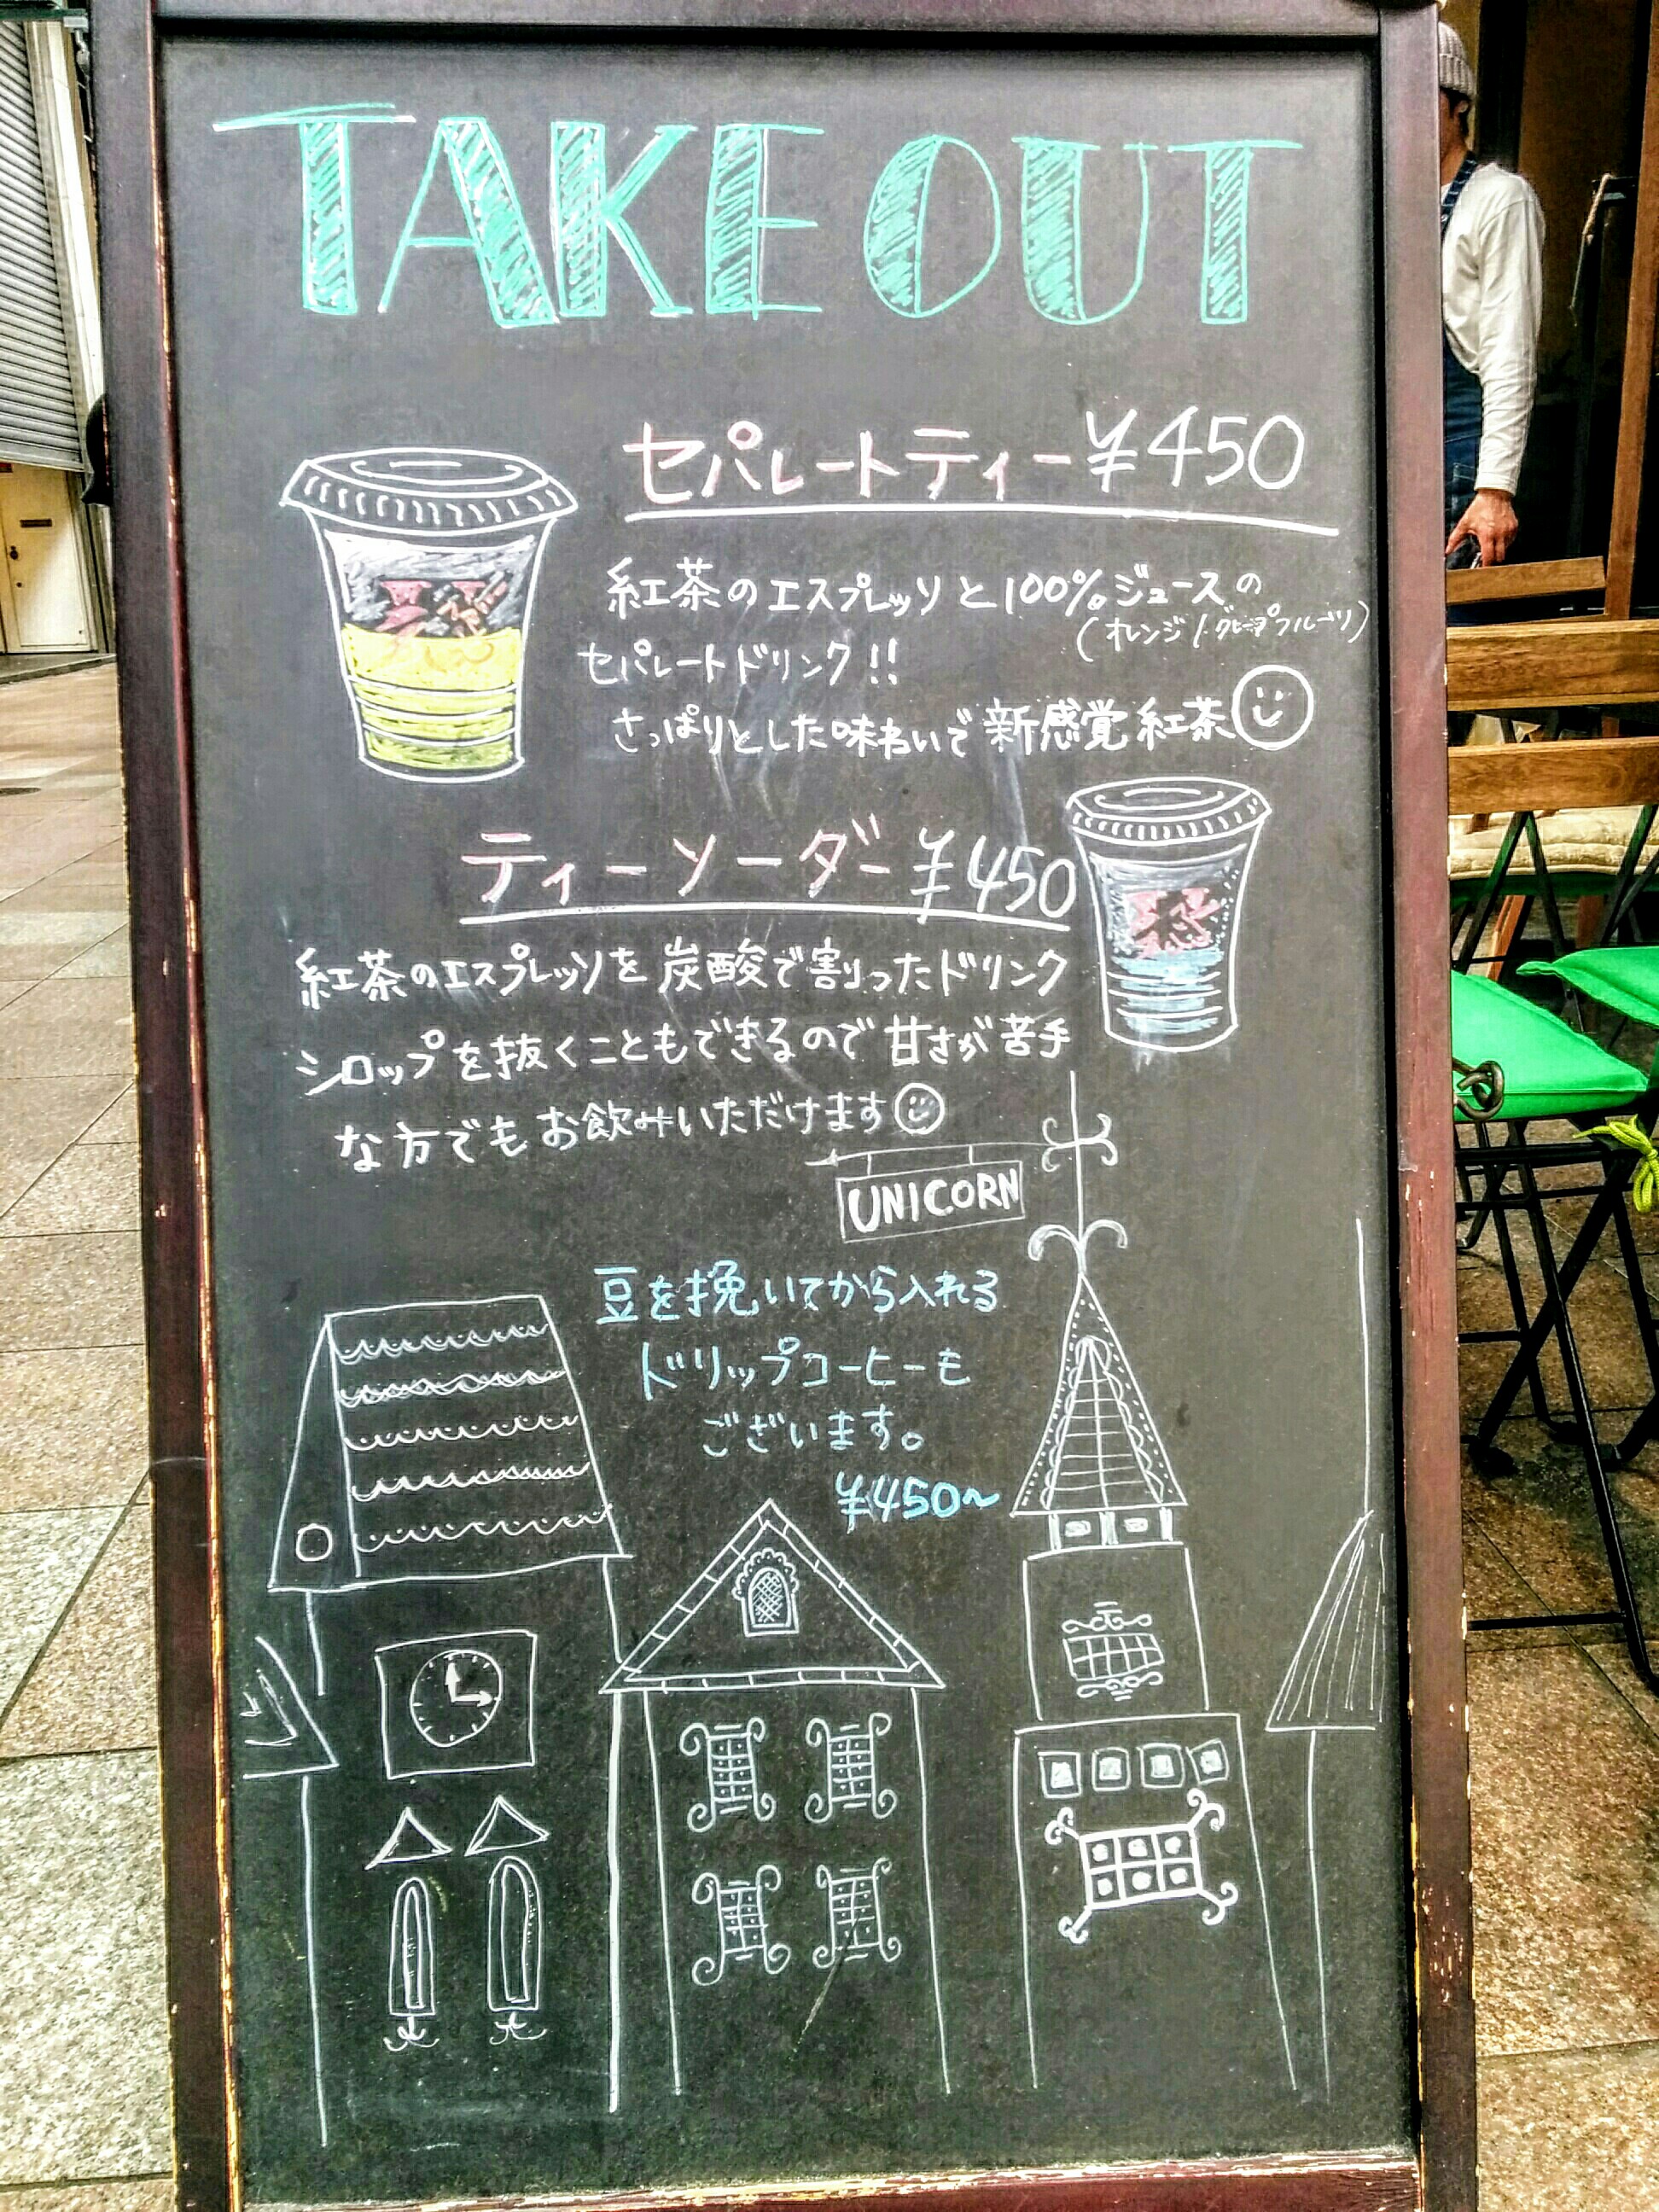 TAKE OUT
セパレートティー ¥450
紅茶のエスプレッソと100%ジュースの
(オレンジ/グレープフルーツ)
セパレートドリンク!!
さっぱりとした味わいで新感覚紅茶
ティーソーダー ¥450
紅茶のエスプレッソを炭酸で割ったドリンク
シロップを抜くこともできるので甘さが苦手
な方でもお飲みいただけます
UNICORN
豆を挽いてから入れる
ドリップコーヒーも
ございます。
¥450~